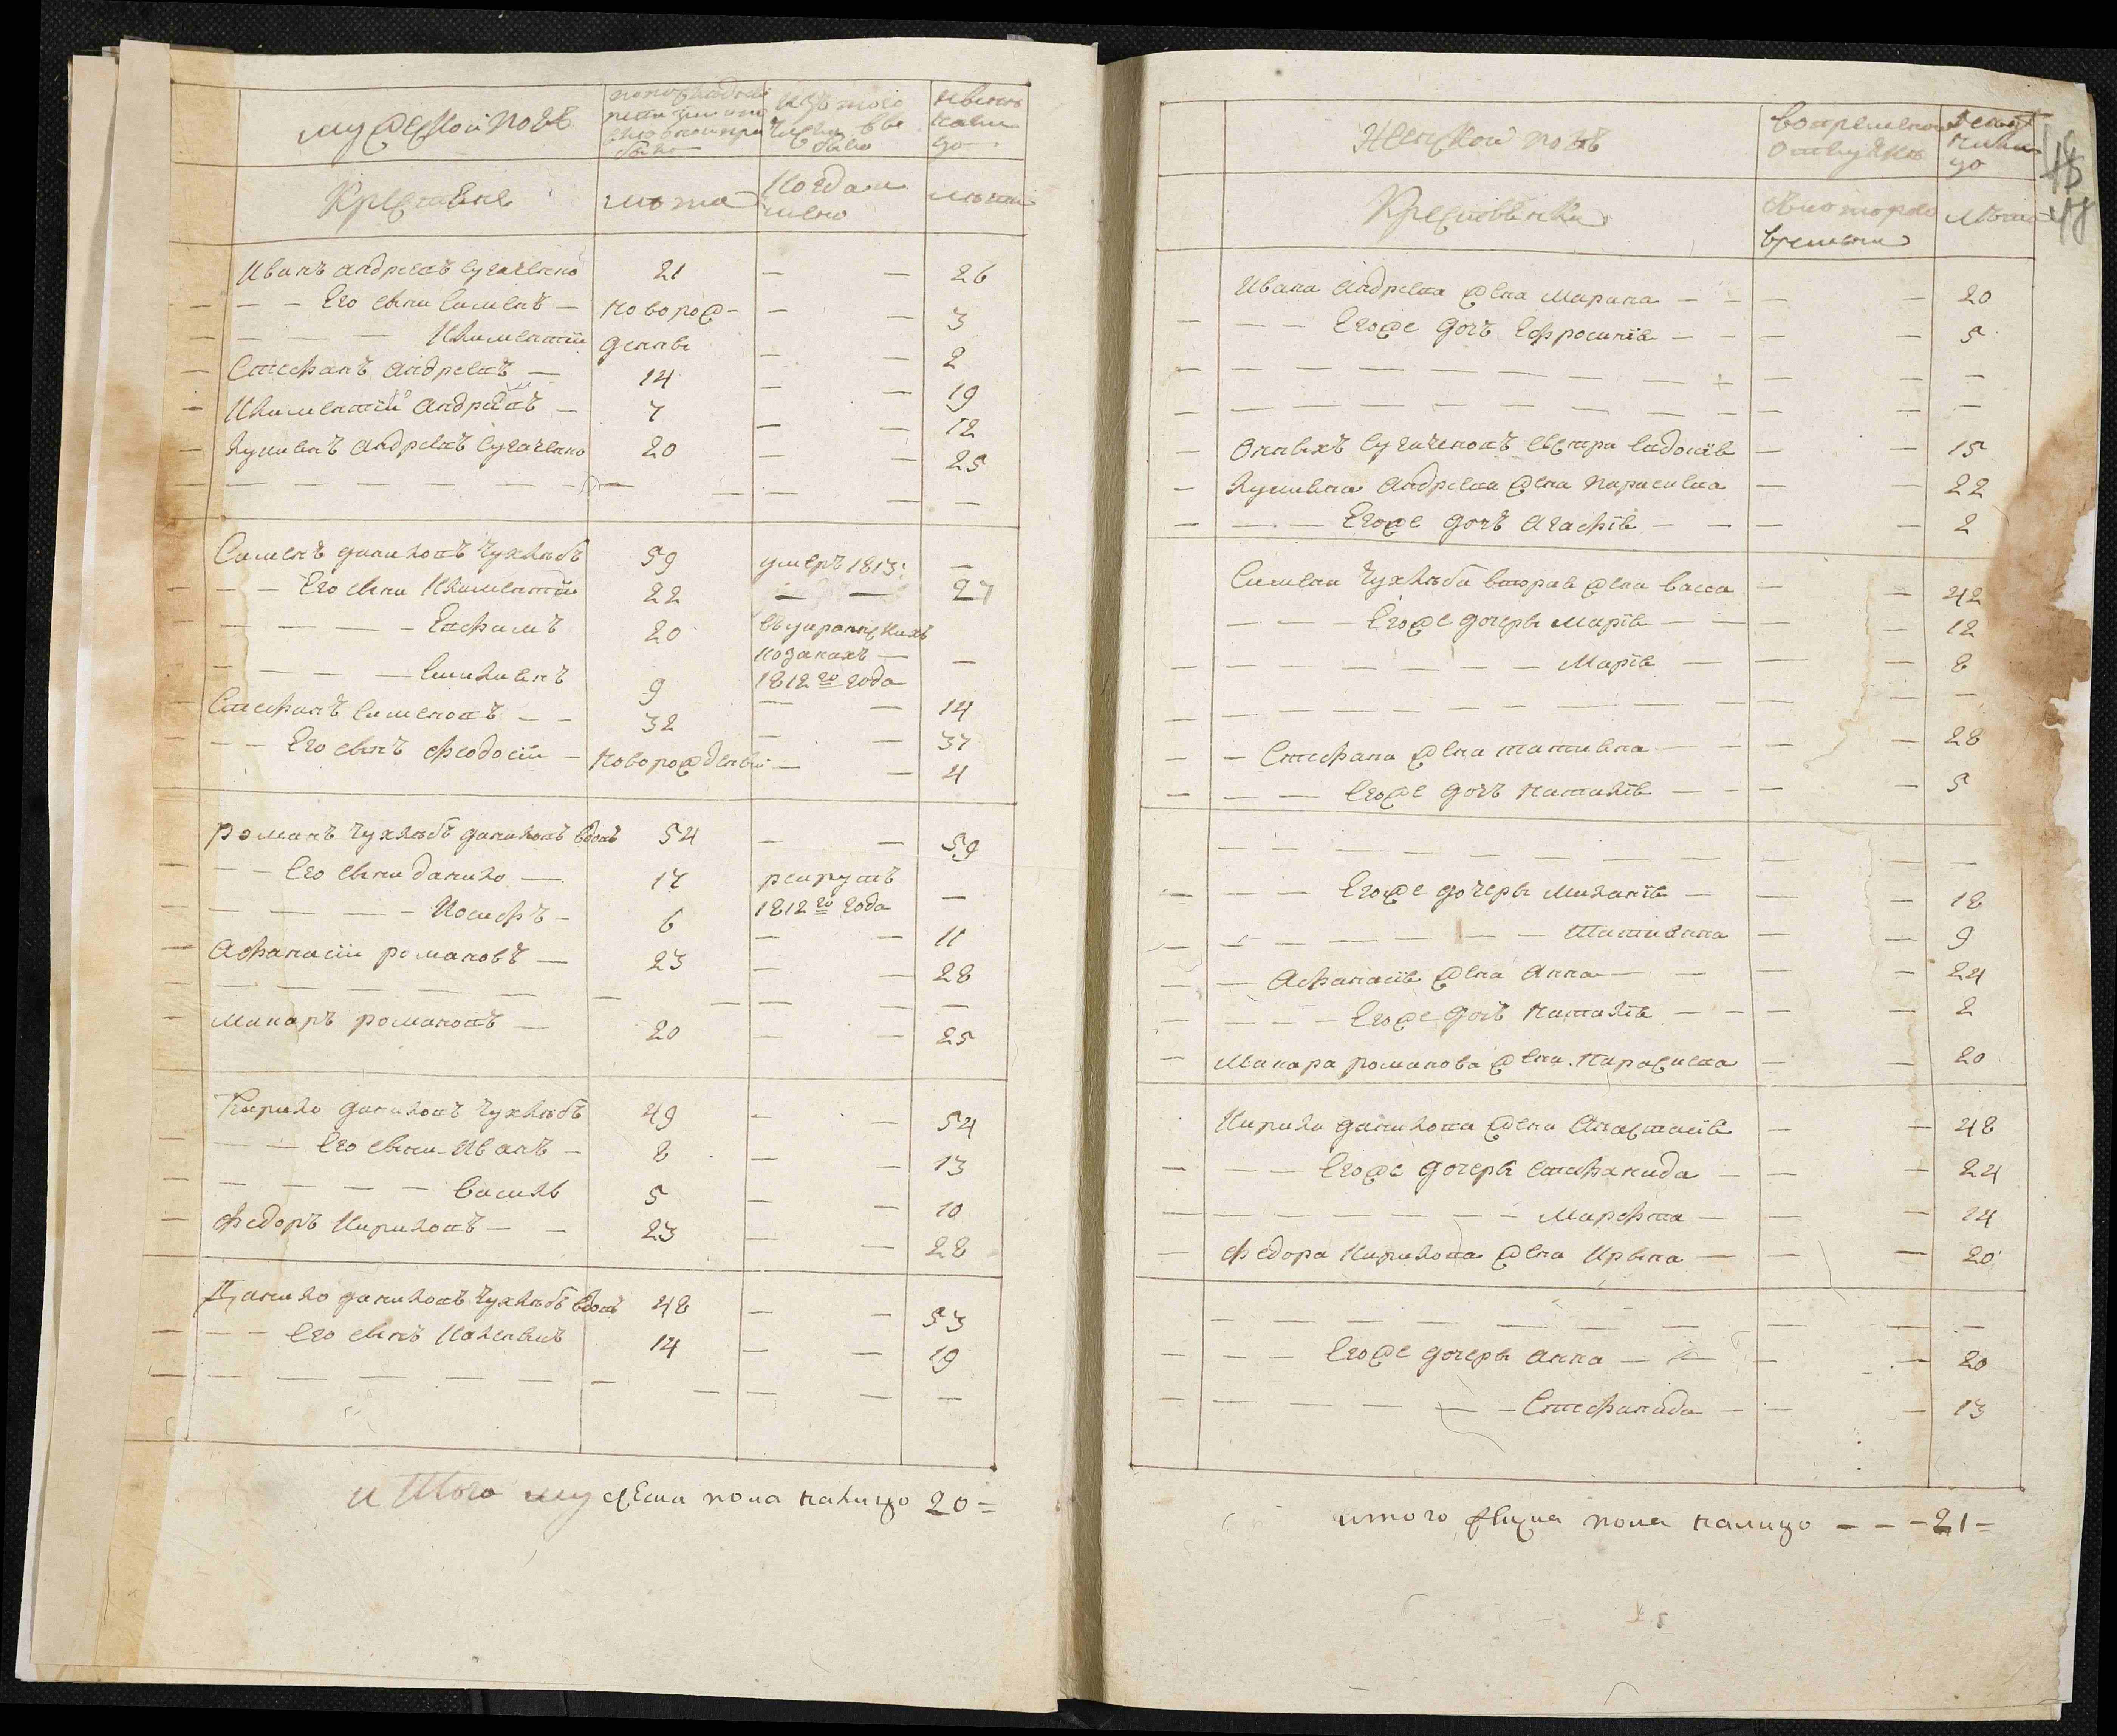 мужеской полъ
по последней ревизии
изъ того числа выбыло
ныне налицо
Крестьяне
лета
Когда именно
лета
Иванъ андреевъ Сугаченко 21 — — 26
— — Его сыни Сименъ — новорож- — — 3
— — — Климентiй денны — — 2
Стефанъ андреевъ — 14 — — 19
Климентiй андреевъ — 7 — — 12
Лукиянъ андреевъ Сугаченко 20 — — 25
Сименъ даниловъ Чухлебъ 59 умеръ 1813: —
— — Его сыни Климентiй 22 — — 27
— — — — Евфимъ 20 въ украинскихъ
козакахъ — —
1812го года
— — — — Емилиянъ 9 — — 14
Стефанъ Сименовъ — — 32 — — 37
— — Его сынъ Феодосiй — новорожденны — — 4
романъ Чухлебъ даниловъ вдовъ 54 — — 59
— — Его сыни данило — 17 рекрутъ —
1812го года
— — — — Иосифъ — 6 — — 11
Афанасiй романовъ — 23 — — 28
макаръ романовъ — 20 — — 25
Кирило даниловъ Чухлебъ 49 — — 54
— — Его сыни Иванъ — 8 — — 13
— — — — — Василь 5 — — 10
Федоръ Кириловъ — — 23 — — 28
Данило даниловъ Чухлебъ вдовъ 48 — — 53
— — его сынъ Каленикъ 14 — — 19
и Того мужеска пола налицо 20=
Женской полъ
во временной отлучке
ныне налицо
Крестьянки
с котораго времени
лета
48
Ивана андреева жена марина — — — — 20
— — — Егоже дочъ Ефросинiя — — — — 5
Оныхъ Сугаченковъ сестра Евдокiя — — 15
Лукияна андреева жена параскева — — 22
— — — Егоже дочъ агафiя — — — — 2
Симена Чухлеба вторая жена васса — — 42
— — — Егоже дочеры марiя — — — — 12
— — — — — — — Марiя — — — 8
— — Стефана жена татияна — — — — 28
— — — Егоже дочъ наталiя — — — — 5
— — — Егоже дочеры миланiя — — — 18
— — — — — — — Татияна — — 9
— — Афанасiя жена анна — — — — 24
— — — — Егоже дочъ наталiя — — — — 2
— Макара романова жена параскева — — 20
Кирила данилова жена анастасiя — — 48
— — — Егоже дочеры Стефанида — — — 24
— — — — — — — марфта — — — 14
— Федора Кирилова жена Ирына — — — 20
— — — Егоже дочеры анна — — — — 20
— — — — — — — Стефанида — — — 13
итого женска пола налицо — — — 21=